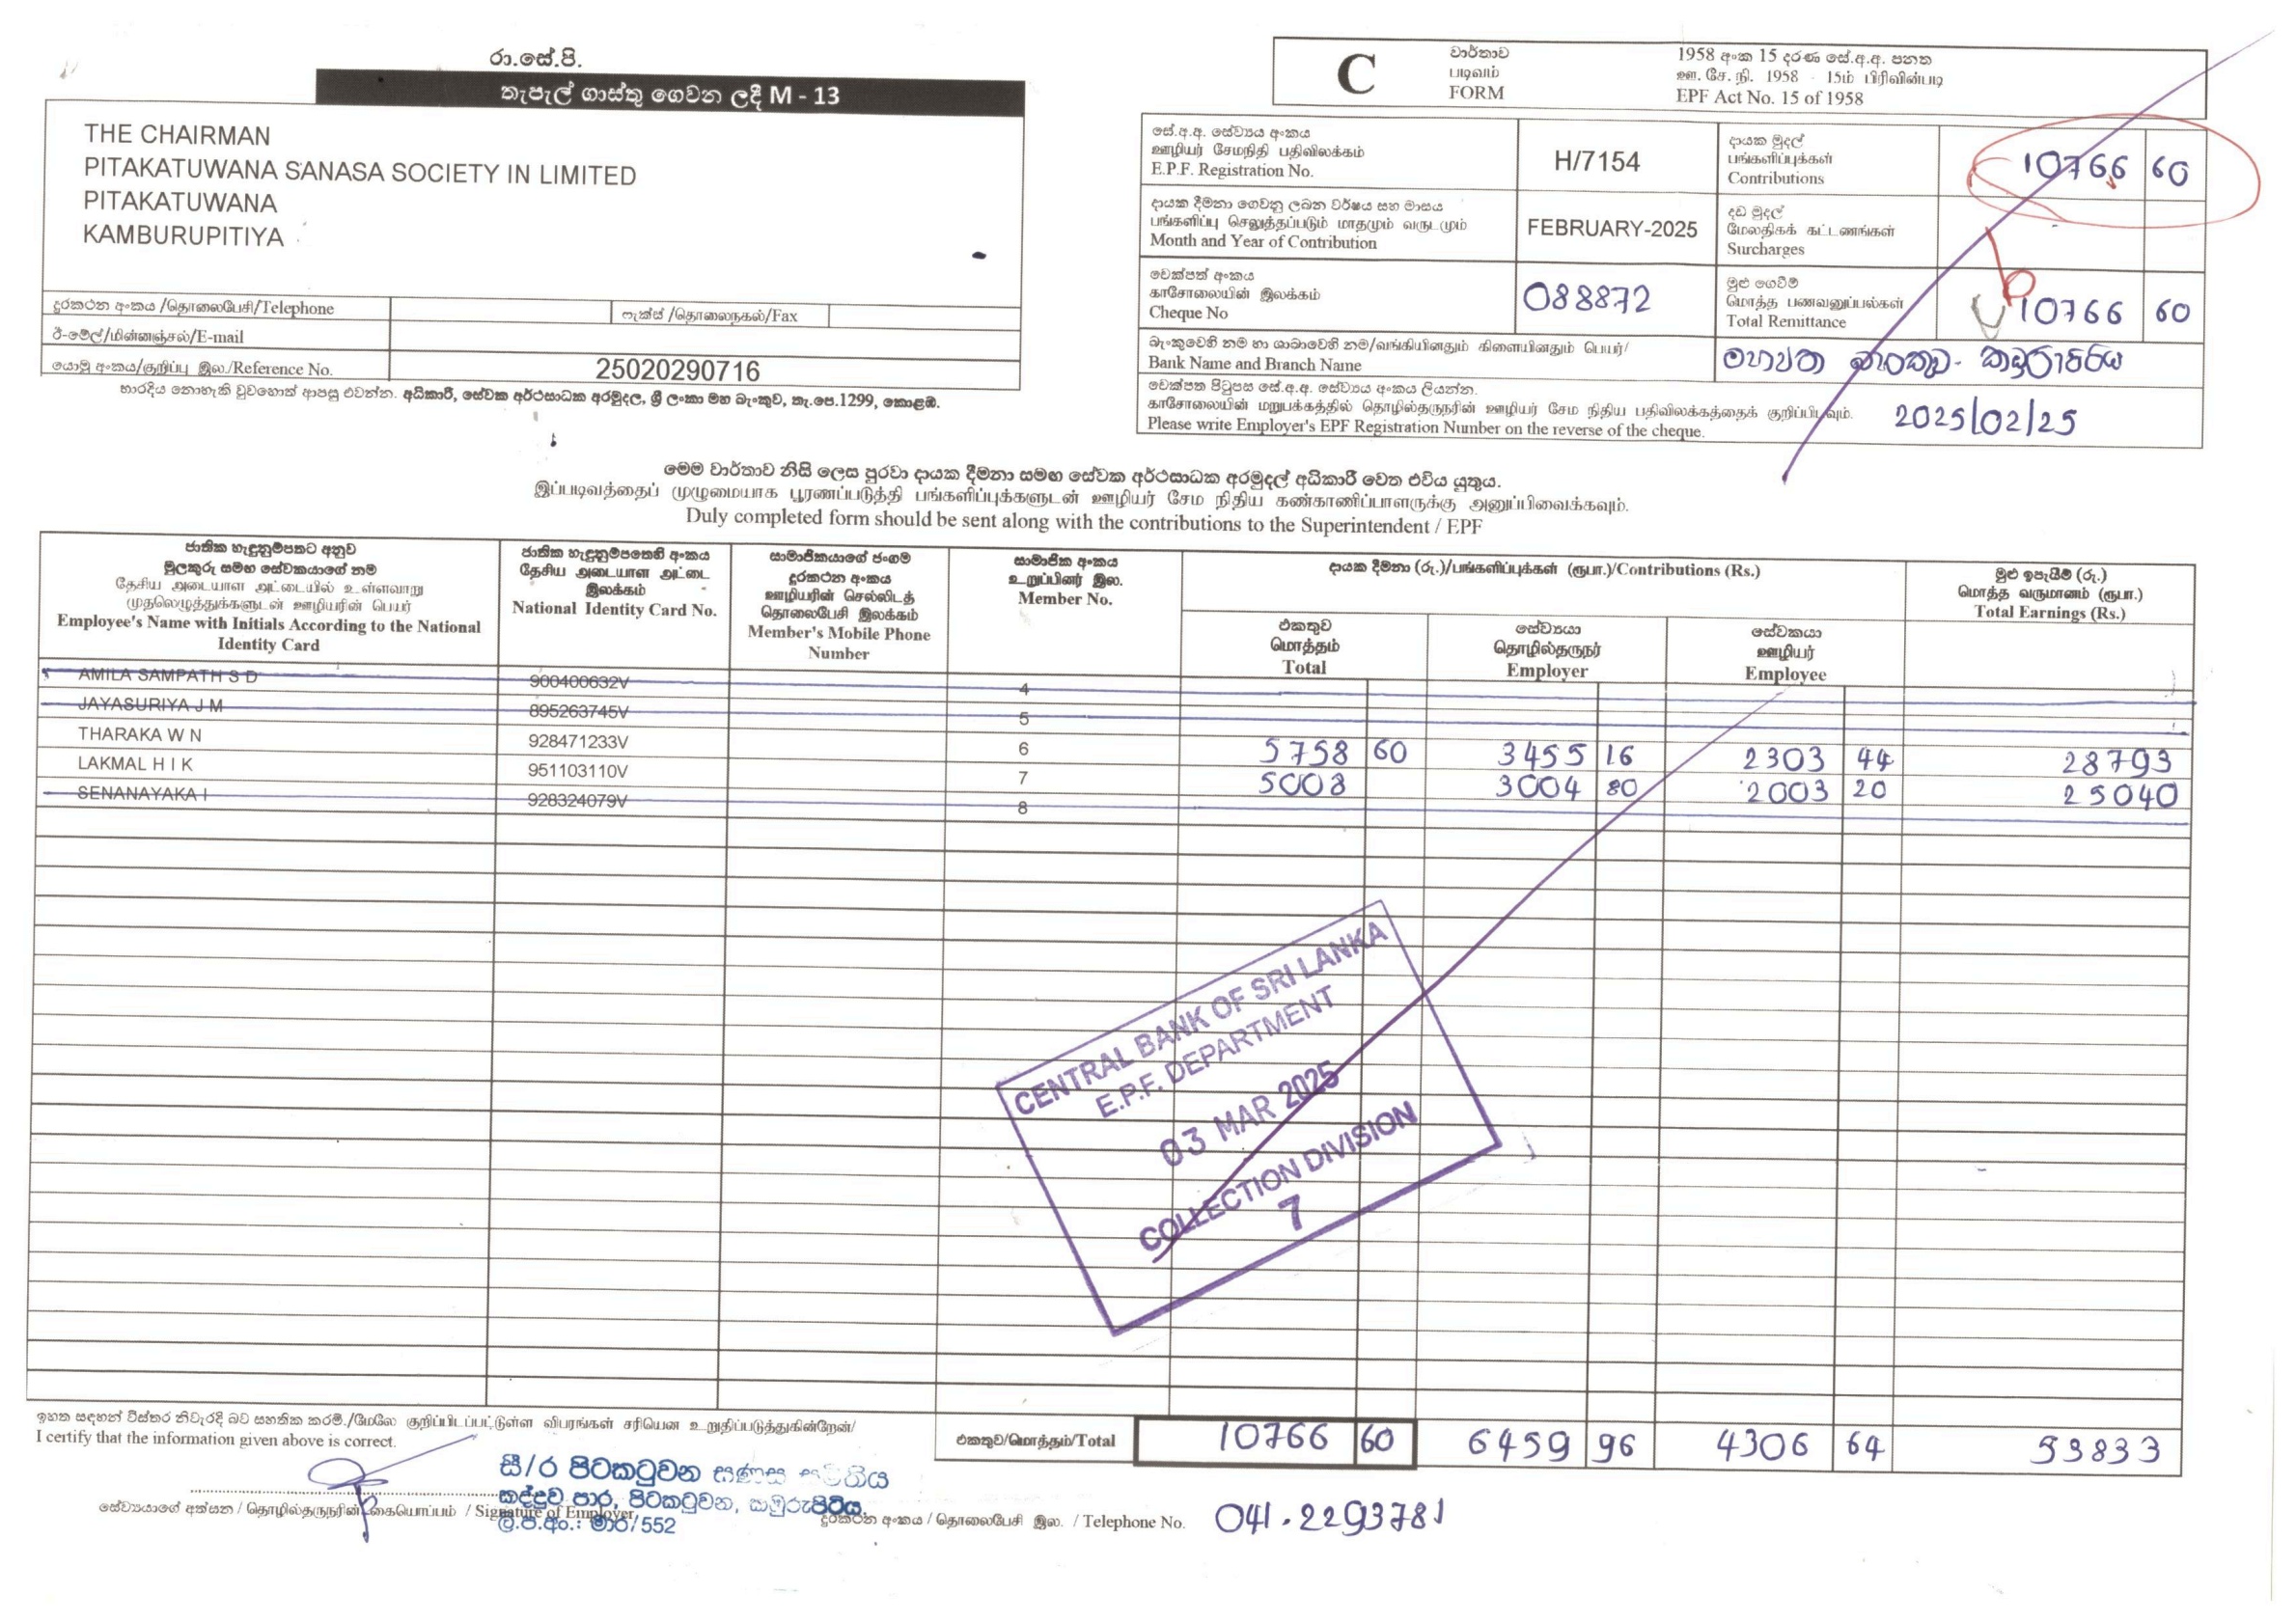 රා.සේ.පි.
තැපැල් ගාස්තු ගෙවන ලදී M - 13
THE CHAIRMAN
PITAKATUWANA SANASA SOCIETY IN LIMITED
PITAKATUWANA
KAMBURUPITIYA
දුරකථන අංකය /தொலைபேசி/Telephone
ෆැක්ස් /தொலைநகல்/Fax
ඊ-මේල්/மின்னஞ்சல்/E-mail
යොමු අංකය/குறிப்பு இல./Reference No. 25020290716
භාරදිය නොහැකි වුවහොත් ආපසු එවන්න. අධිකාරී, සේවක අර්ථසාධක අරමුදල, ශ්‍රී ලංකා මහ බැංකුව, තැ.පෙ.1299, කොළඹ.
C
වාර්තාව
படிவம்
FORM
1958 අංක 15 දරණ සේ.අ.අ. පනත
ஊ. சே. நி. 1958 - 15ம் பிரிவின்படி
EPF Act No. 15 of 1958
සේ.අ.අ. සේව්‍ය අංකය
ஊழியர் சேமநிதி பதிவிலக்கம்
E.P.F. Registration No.
H/7154
දායක මුදල්
பங்களிப்புக்கள்
Contributions
10766 60
දායක දීමනා ගෙවනු ලබන වර්ෂය සහ මාසය
பங்களிப்பு செலுத்தப்படும் மாதமும் வருடமும்
Month and Year of Contribution
FEBRUARY-2025
දඩ මුදල්
மேலதிகக் கட்டணங்கள்
Surcharges
චෙක්පත් අංකය
காசோலையின் இலக்கம்
Cheque No
088872
මුළු ගෙවීම්
மொத்த பணவனுப்பல்கள்
Total Remittance
10766 60
බැංකුවෙහි නම හා ශාඛාවෙහි නම/வங்கியினதும் கிளையினதும் பெயர்/
Bank Name and Branch Name
චෙක්පත පිටුපස සේ.අ.අ. සේව්‍ය අංකය ලියන්න.
காசோலையின் மறுபக்கத்தில் தொழில்தருநரின் ஊழியர் சேம நிதிய பதிவிலக்கத்தைக் குறிப்பிடவும்.
Please write Employer's EPF Registration Number on the reverse of the cheque.
2025/02/25
මෙම වාර්තාව නිසි ලෙස පුරවා දායක දීමනා සමඟ සේවක අර්ථසාධක අරමුදල් අධිකාරී වෙත එවිය යුතුය.
இப்படிவத்தைப் முழுமையாக பூரணப்படுத்தி பங்களிப்புக்களுடன் ஊழியர் சேம நிதிய கண்காணிப்பாளருக்கு அனுப்பிவைக்கவும்.
Duly completed form should be sent along with the contributions to the Superintendent / EPF
ජාතික හැඳුනුම්පතට අනුව
මුලකුරු සමඟ සේවකයාගේ නම
தேசிய அடையாள அட்டையில் உள்ளவாறு
முதலெழுத்துக்களுடன் ஊழியரின் பெயர்
Employee's Name with Initials According to the National
Identity Card
ජාතික හැඳුනුම්පතෙහි අංකය
தேசிய அடையாள அட்டை
இலக்கம்
National Identity Card No.
සාමාජිකයාගේ ජංගම
දුරකථන අංකය
ஊழியரின் செல்லிடத்
தொலைபேசி இலக்கம்
Member's Mobile Phone
Number
සාමාජික අංකය
உறுப்பினர் இல.
Member No.
දායක දීමනා (රු.)/பங்களிப்புக்கள் (ரூபா.)/Contributions (Rs.)
එකතුව
மொத்தம்
Total
සේව්‍යයා
தொழில்தருநர்
Employer
සේවකයා
ஊழியர்
Employee
මුළු ඉපැයීම් (රු.)
மொத்த வருமானம் (ரூபா.)
Total Earnings (Rs.)
AMILA SAMPATH S D 900400632V 4
JAYASURIYA J M 895263745V 5
THARAKA W N 928471233V 6 5758 60 3455 16 2303 44 28793
LAKMAL H I K 951103110V 7 5008 3004 80 2003 20 25040
SENANAYAKA I 928324079V 8
CENTRAL BANK OF SRI LANKA
E.P.F. DEPARTMENT
03 MAR 2025
COLLECTION DIVISION
7
ඉහත සඳහන් විස්තර නිවැරදි බව සහතික කරමි./மேலே குறிப்பிடப்பட்டுள்ள விபரங்கள் சரியென உறுதிப்படுத்துகின்றேன்/
I certify that the information given above is correct.
එකතුව/மொத்தம்/Total 10766 60 6459 96 4306 64 53833
සී/ර පිටකටුවන සණස සමිතිය
කද්දුව පාර, පිටකටුවන, කඹුරුපිටිය.
ලි.ප.අං.: මාර/552
සේව්‍යයාගේ අත්සන / தொழில்தருநரின் கையொப்பம் / Signature of Employer
දුරකථන අංකය / தொலைபேசி இல. / Telephone No. 041.2293781